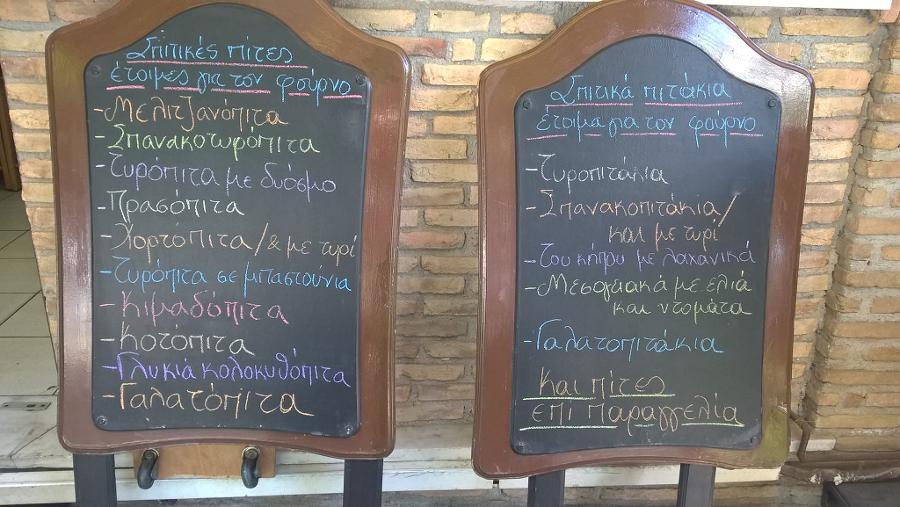 Σπιτικές πίτες
έτοιμες για τον φούρνο
-Μελιτζανόπιτα
-Σπανακοτυρόπιτα
-Τυρόπιτα με δυόσμο
-Πρασόπιτα
-Χορτόπιτα/& με τυρί
-Τυρόπιτα σε μπαστούνια
-Κιμαδόπιτα
-Κοτόπιτα
-Γλυκιά κολοκυθόπιτα
-Γαλατόπιτα
Σπιτικά πιτάκια
έτοιμα για τον φούρνο
-Τυροπιτάκια
-Σπανακοπιτάκια/
και με τυρί
-Του κήπου με λαχανικά
-Μεσογειακά με ελιά
και ντομάτα
-Γαλατοπιτάκια
Και πίτες
επί παραγγελία